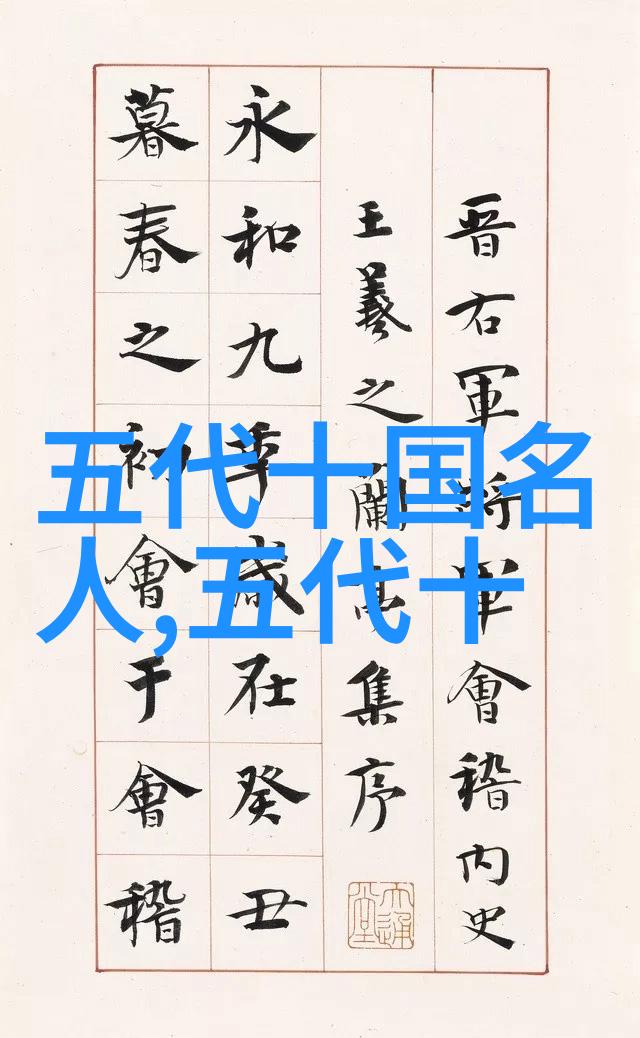 晋右軍將軍會稽内史
王羲之蘭亭集序
永和九年歲在癸丑
暮春之初會于會稽
五代十国名
人,五代十